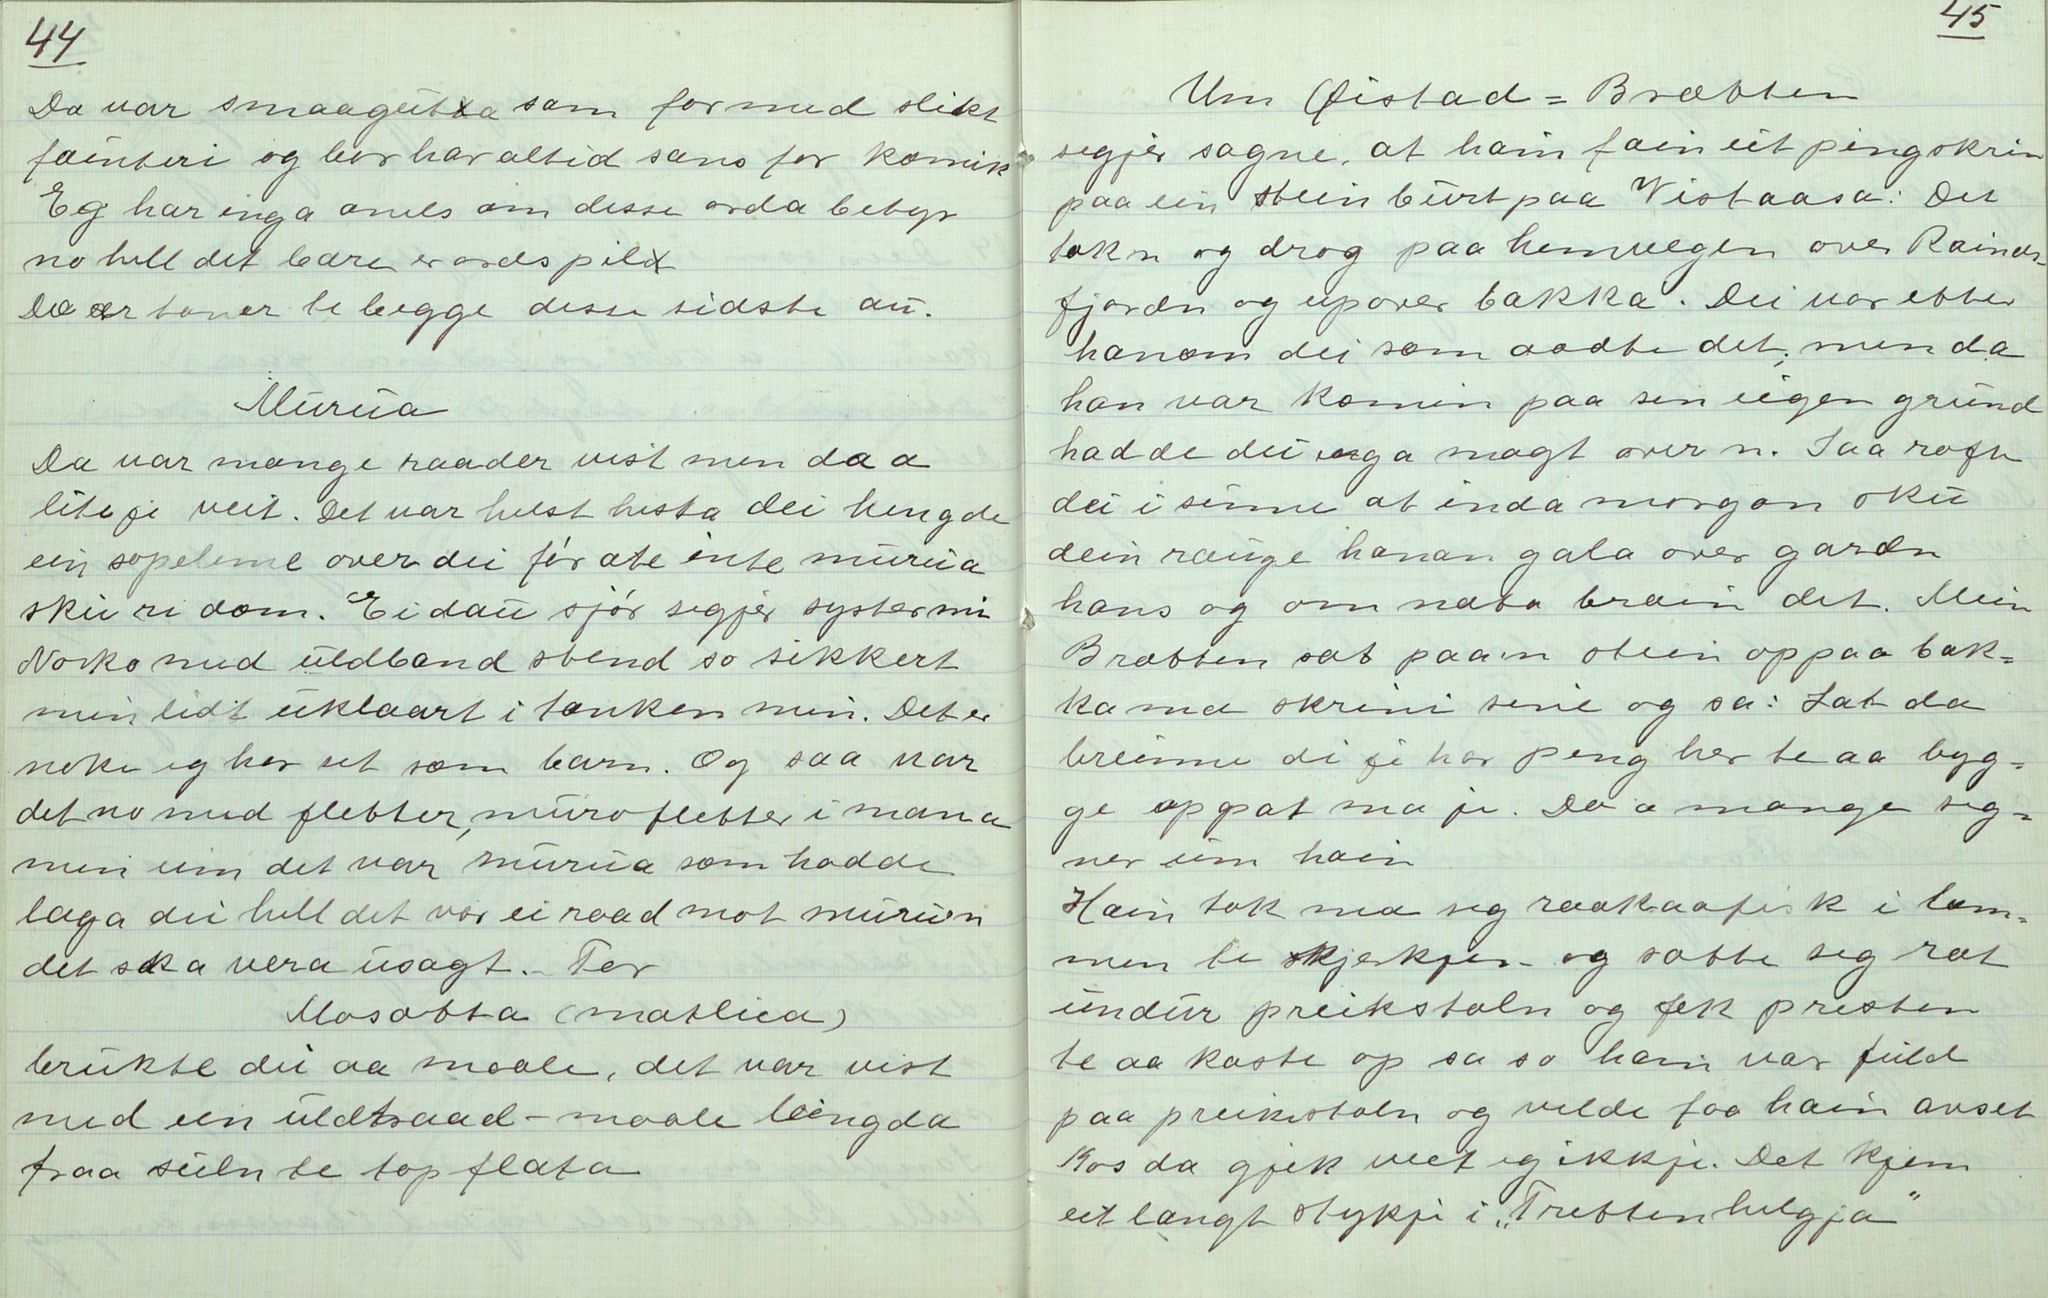 44
Da var smaagutta som for med slikt
fainteri og bor har altid sans for komik
Eg har inga anels om disse orda betyr
no hell det bare er ordspil
Da er toner te begge desse sidste au.
Murua
Da var mange raader vist men da a
lite je veit. Det var helst hesta dei hengde
ein sopelime over dei for ate inte murua
sku ri dom. Ei dau sjór segjer syster mi
Noko med uldband stend so sikkert
men lidt uklaart i tanken min. Det er
noke eg her set som barn. Og saa var
det no med fletter, muroflетter i mana
men um det var murua som hadde
laga dei hell det var ei raad mot muruen
det ska vera usagt. Ter
Mosotta (matlica)
brukte dei aa maale, det var vist
med ein uldtraad - maale lengda
fraa suln te topflata
45
Um Øistad = Brætten
segjer sagne, at hain fain eit pengskrin
paa ein stein burt paa Vistaasa: Det
tok n og drog paa hemvegen over Rainds-
fjordn og upover bakka. Dei var etter
hanom dei som aadte det, men da
han var komin paa sin eigen grund
hadde dei inga magt over n. Saa rofte
dei i sinne at inda morgon sku
dein rauge hanan gala over gardn
hans og om næta brain det. Mein
Brætten sat paa'n stein oppaa bak=
ka ma skrini sine og sa: Lat da
breinne di je har peng her te aa byg=
ge oppat ma je. Da a mange seg=
ner um hain
Hain tok ma seg raakaafisk i lom=
men te kjerkjen og satte seg ræt
undur preikstoln og fek presten
te aa kaste op sa so hain var fuld
paa preikestoln og velde faa hain avset
Kos da gjek veit eg ikkje. Det kjem
eit langt stykje i „Trettenhelgja"